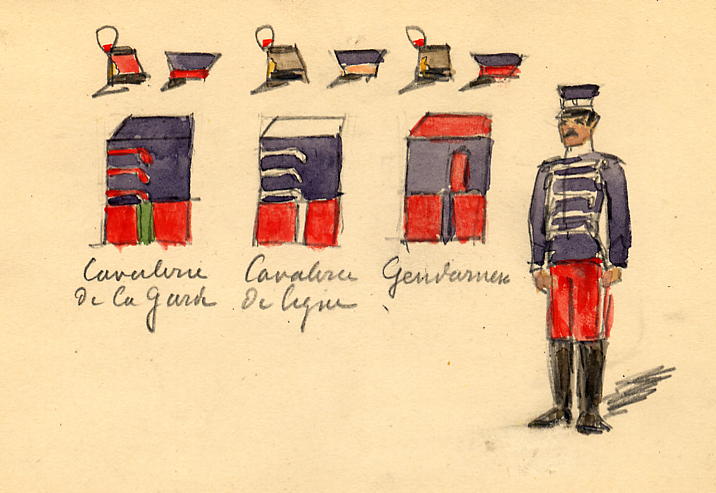 Cavalerie
de la Garde
Cavalerie
de ligne
Gendarmerie